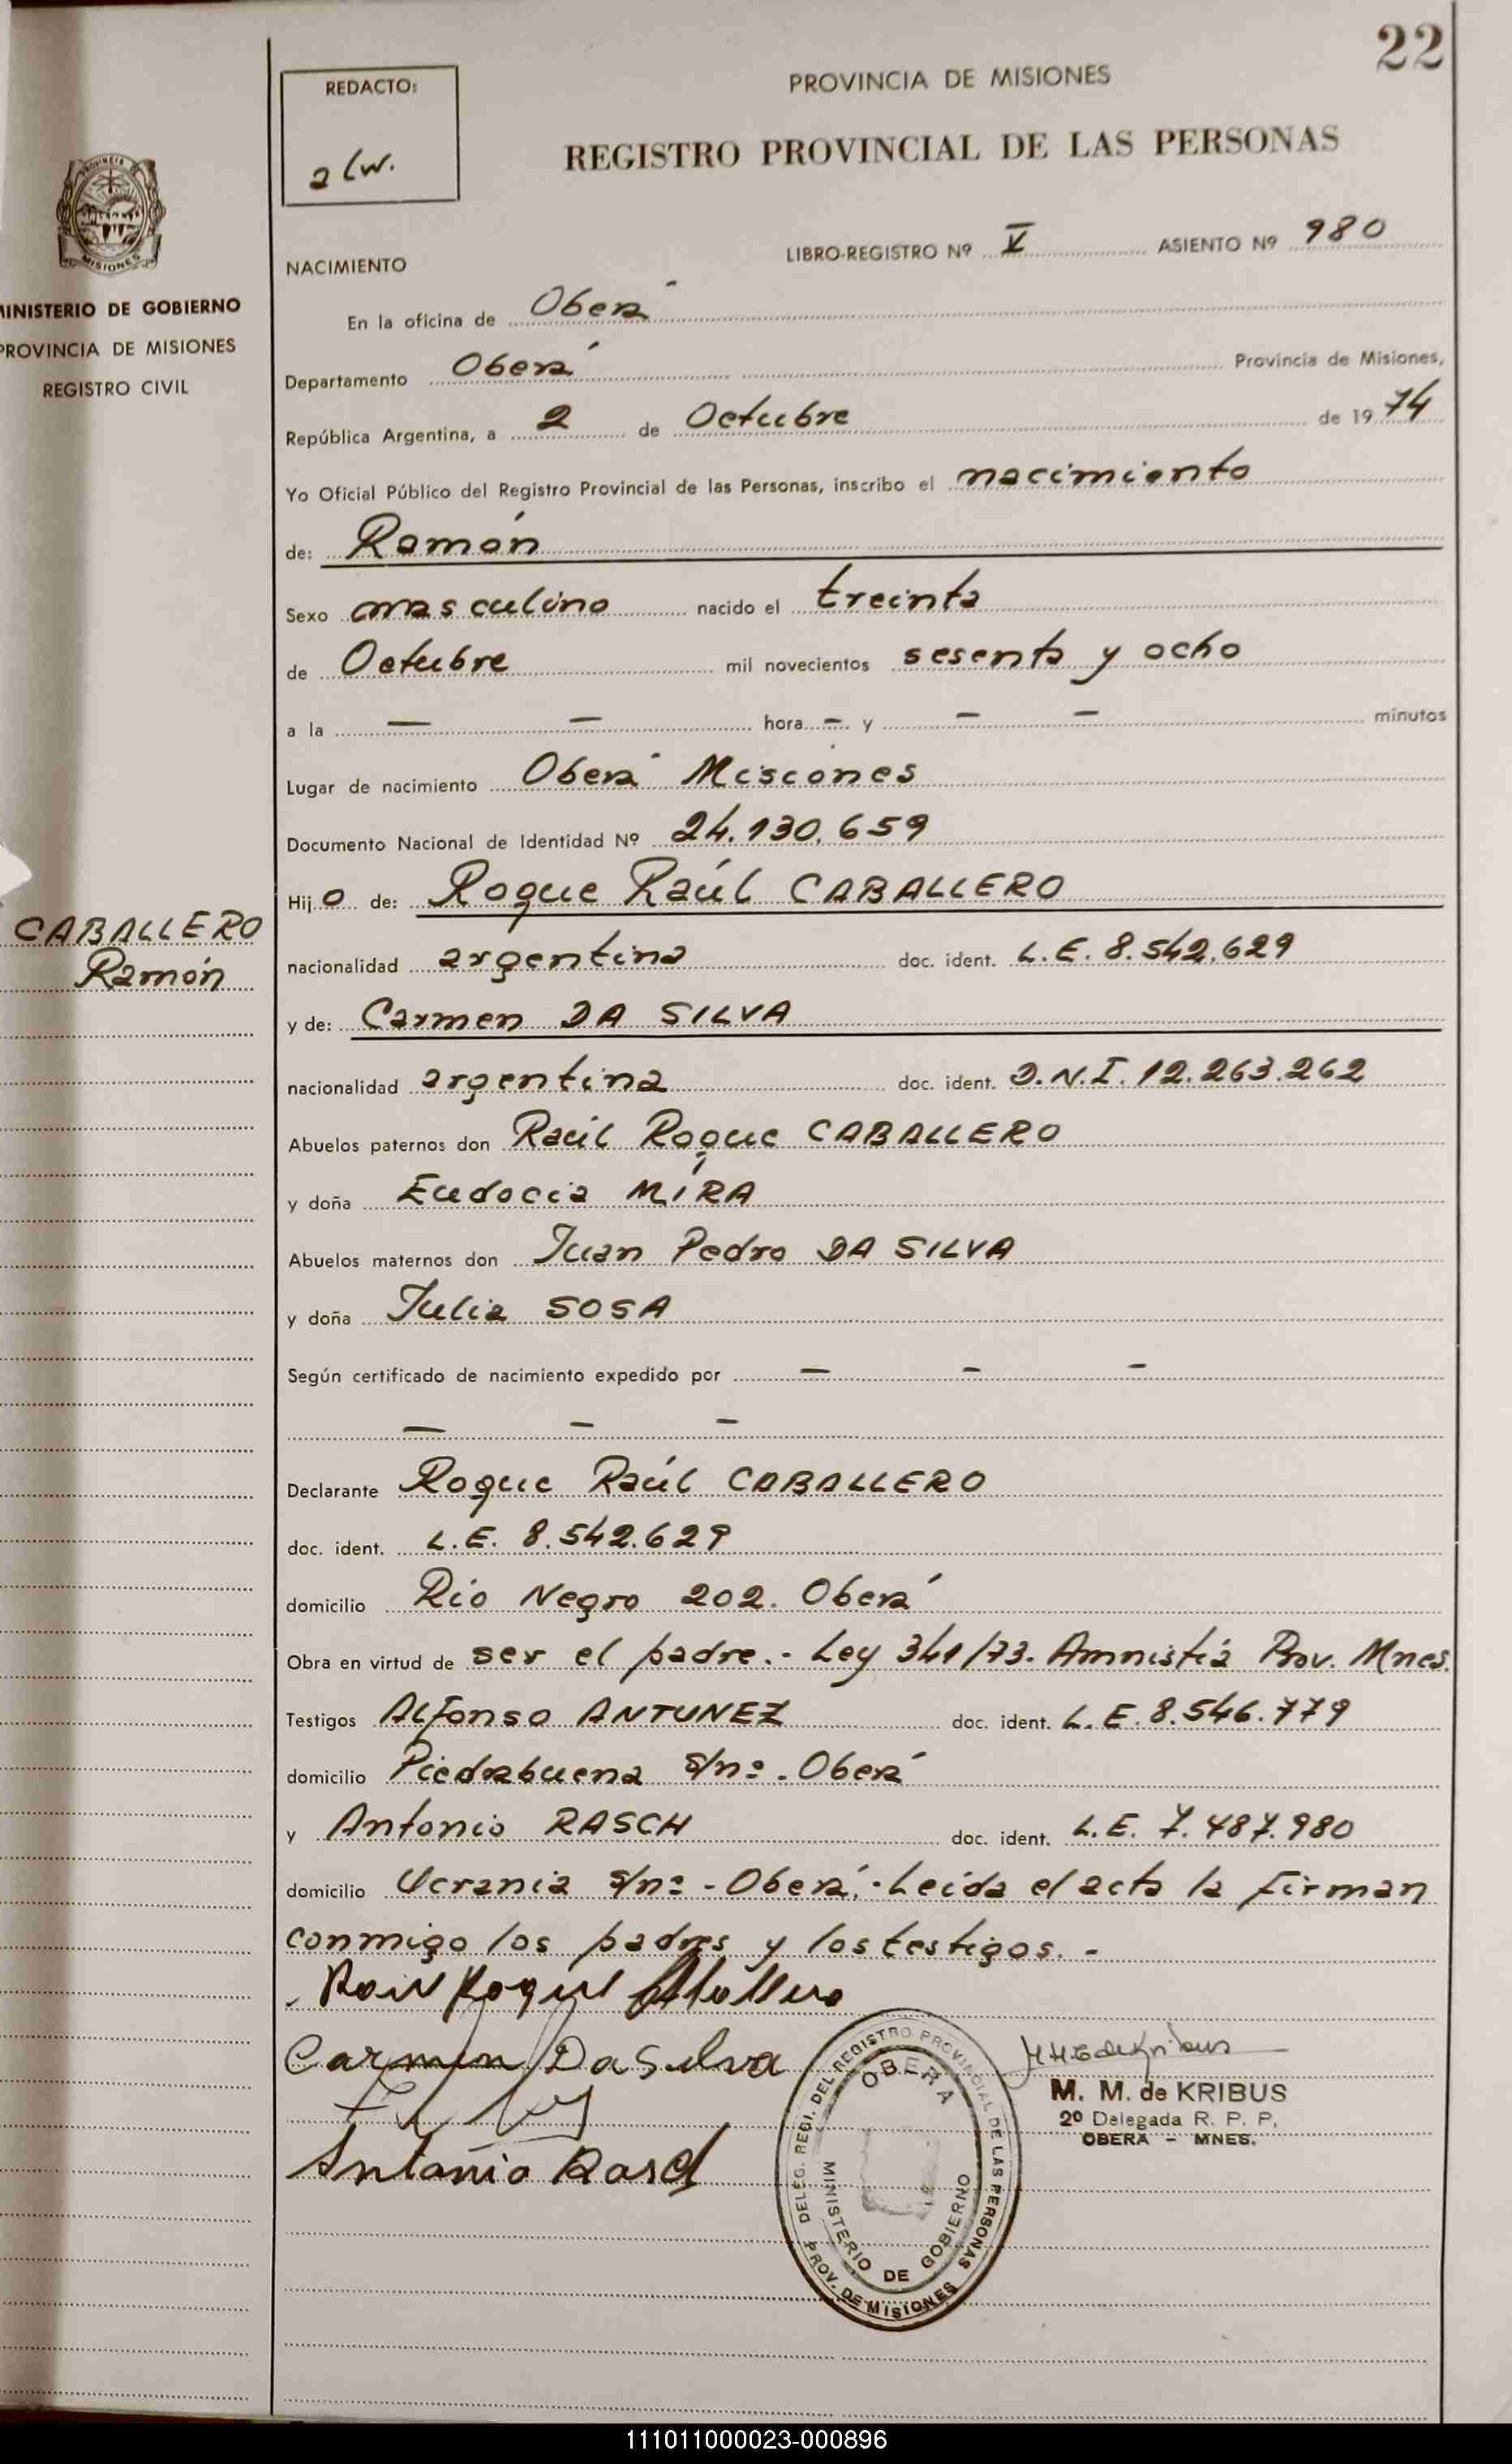 22
REDACTO:
PROVINCIA DE MISIONES
REGISTRO PROVINCIAL DE LAS PERSONAS
PROVINCIA
MISIONES
MINISTERIO DE GOBIERNO
PROVINCIA DE MISIONES
REGISTRO CIVIL
NACIMIENTO
LIBRO-REGISTRO Nº V ASIENTO Nº 980
En la oficina de Oberá
Departamento Oberá Provincia de Misiones,
República Argentina, a 2 de Octubre de 1974
Yo Oficial Público del Registro Provincial de las Personas, inscribo el nacimiento
de: Ramón
Sexo masculino nacido el treinta
de Octubre mil novecientos sesenta y ocho
a la — — hora — y — — minutos
Lugar de nacimiento Oberá Misiones
Documento Nacional de Identidad Nº 24.130.659
Hijo de: Roque Raúl CABALLERO
CABALLERO
Ramón
nacionalidad argentina doc. ident. L.E. 8.542.629
y de: Carmen DA SILVA
nacionalidad argentina doc. ident. D.N.I. 12.263.262
Abuelos paternos don Raúl Roque CABALLERO
y doña Eudocia MÍRA
Abuelos maternos don Juan Pedro DA SILVA
y doña Julia SOSA
Según certificado de nacimiento expedido por — — —
— — —
Declarante Roque Raúl CABALLERO
doc. ident. L.E. 8.542.629
domicilio Río Negro 202. Oberá
Obra en virtud de ser el padre.- Ley 341/73. Amnistía Prov. Mnes.
Testigos Alfonso ANTUNEZ doc. ident. L.E. 8.546.779
domicilio Piedrabuena s/nº. Oberá
y Antonio RASCH doc. ident. L.E. 7.487.980
domicilio Ucrania s/nº - Oberá.- Leída el acta la firman
conmigo los padres y los testigos. -
Raúl Roque Caballero
Carmen Da Silva
Antonio Rasch
DELEG. REGI. DEL REGISTRO PROVINCIAL DE LAS PERSONAS
OBERA
MINISTERIO DE GOBIERNO
PROV. DE MISIONES
M. M. de KRIBUS
2º Delegada R. P. P.
OBERA - MNES.
111011000023-000896